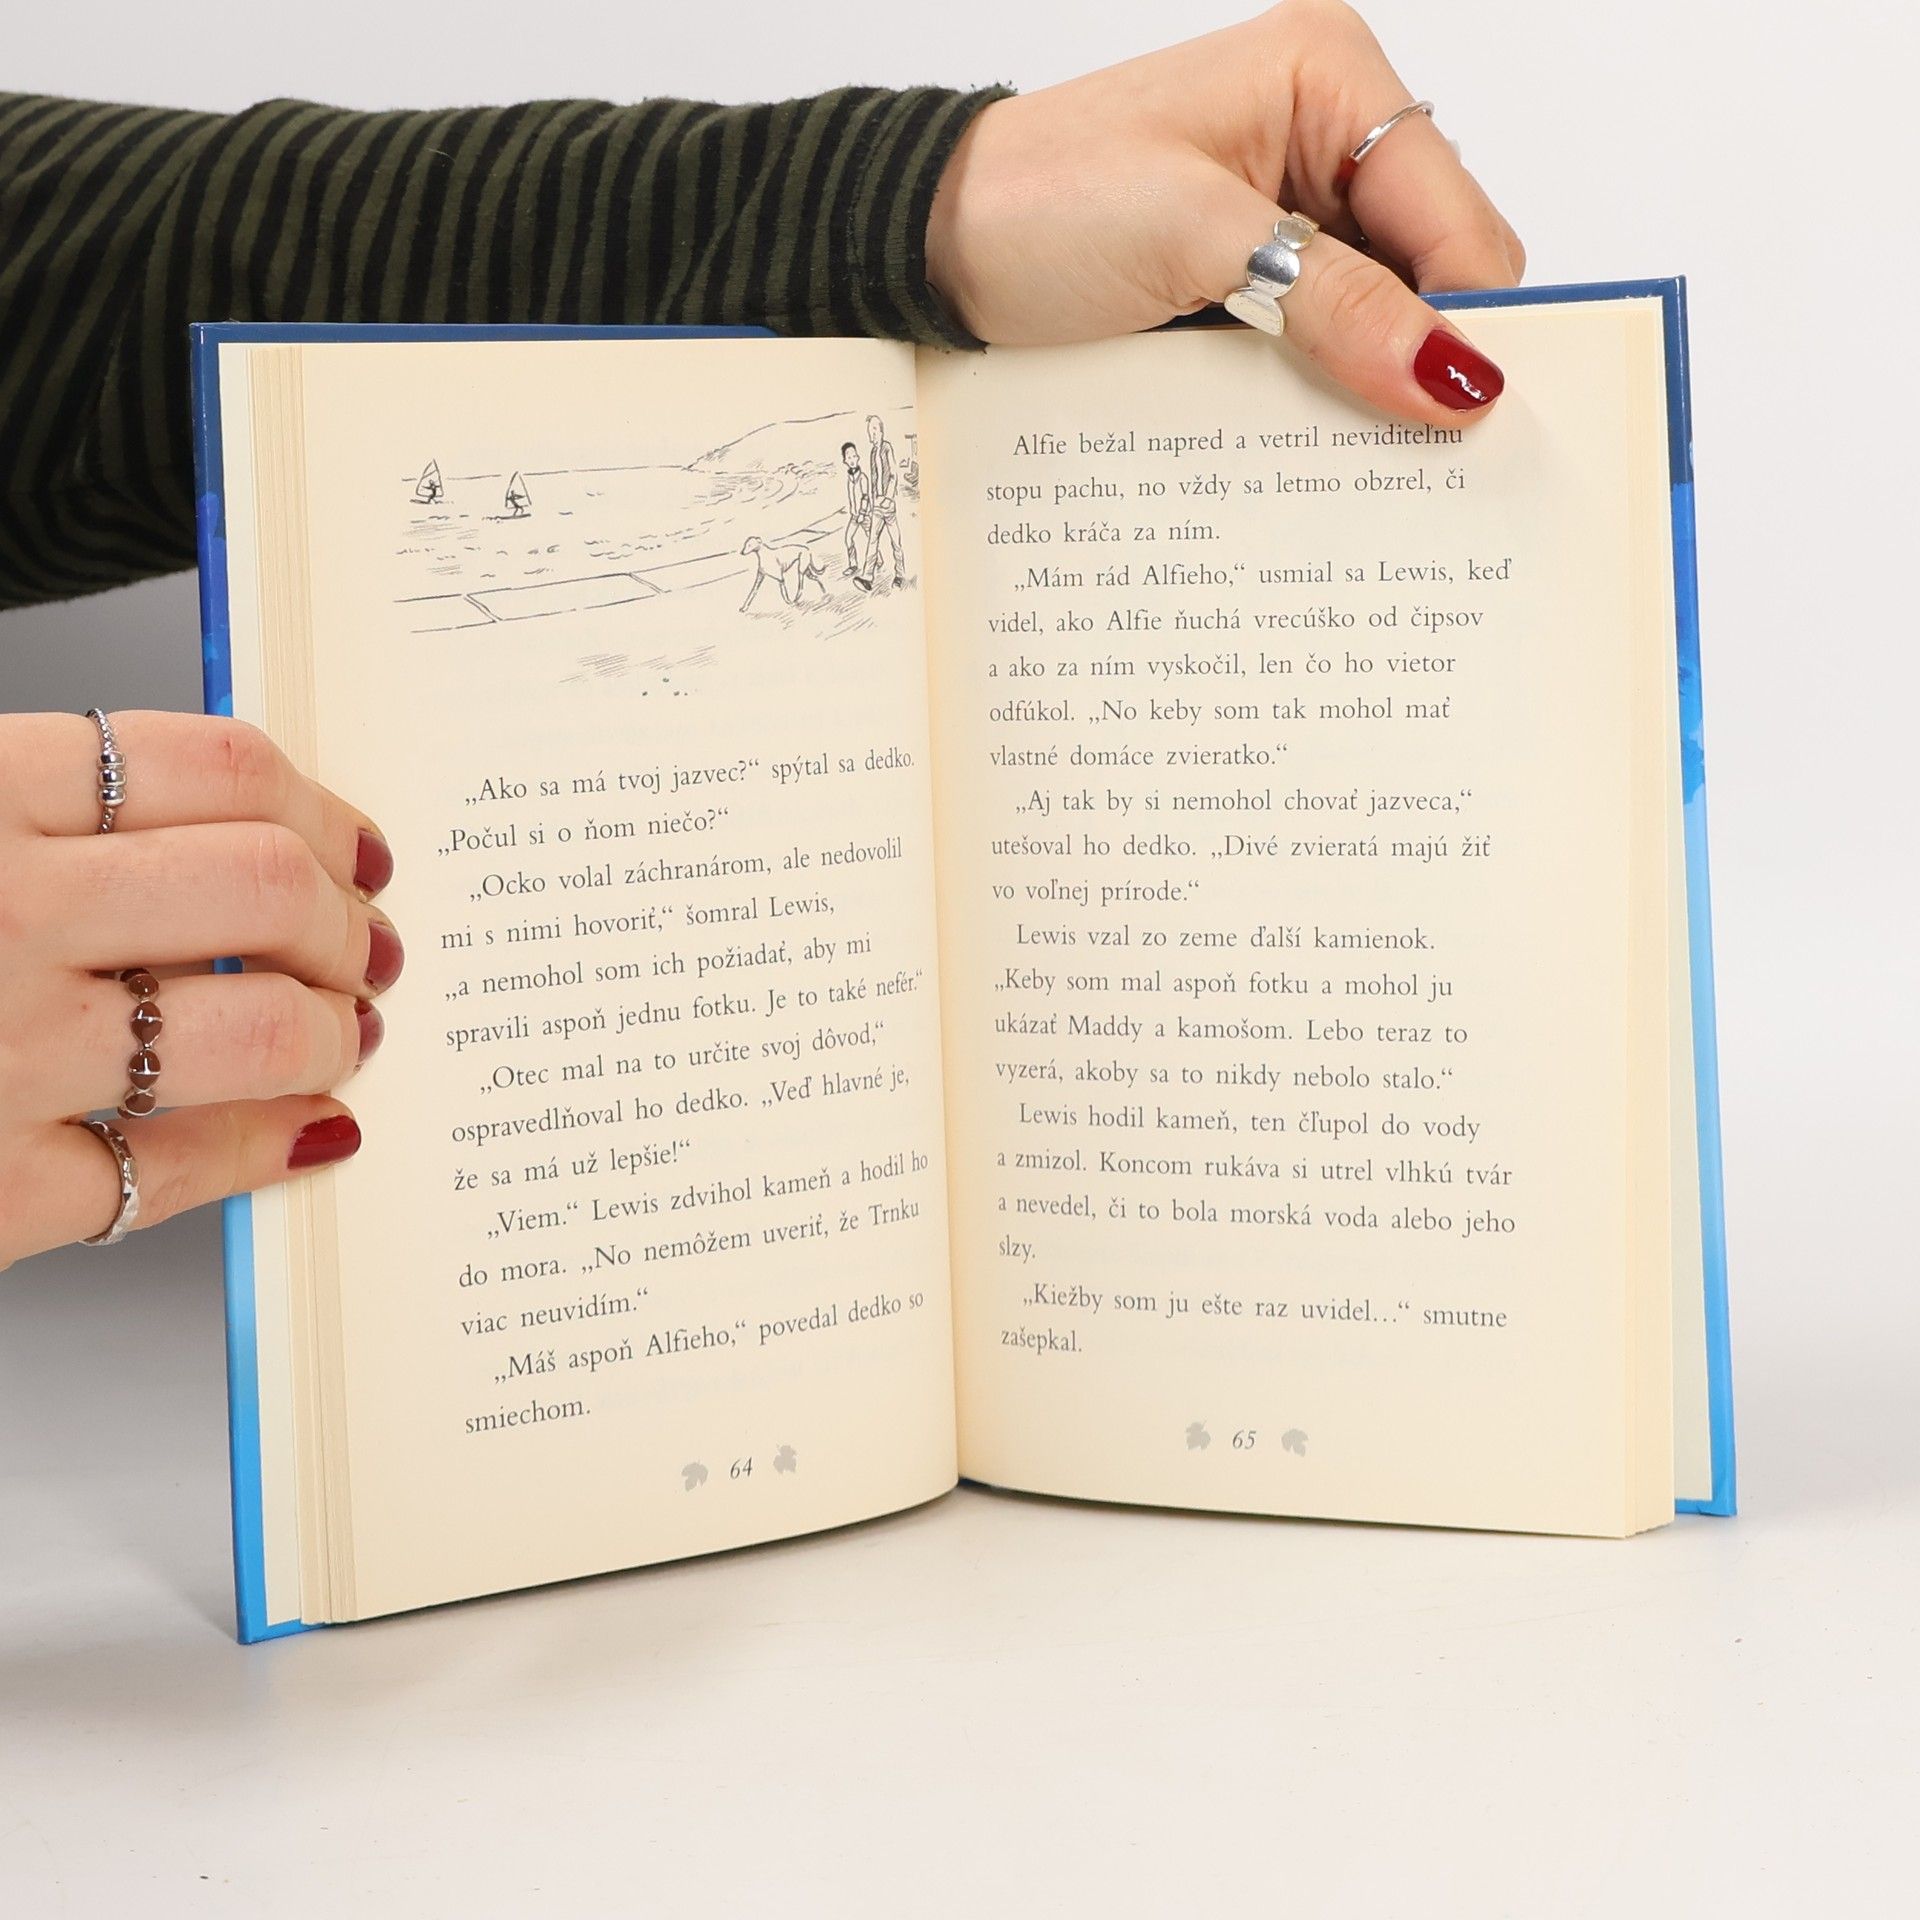 „Ako sa má tvoj jazvec?“ spýtal sa dedko.
„Počul si o ňom niečo?“
„Ocko volal záchranárom, ale nedovolil
mi s nimi hovoriť,“ šomral Lewis,
„a nemohol som ich požiadať, aby mi
spravili aspoň jednu fotku. Je to také nefér.“
„Otec mal na to určite svoj dôvod,“
ospravedlňoval ho dedko. „Veď hlavné je,
že sa má už lepšie!“
„Viem.“ Lewis zdvihol kameň a hodil ho
do mora. „No nemôžem uveriť, že Trnku
viac neuvidím.“
„Máš aspoň Alfieho,“ povedal dedko so
smiechom.
64
Alfie bežal napred a vetril neviditeľnu
stopu pachu, no vždy sa letmo obzrel, či
dedko kráča za ním.
„Mám rád Alfieho,“ usmial sa Lewis, keď
videl, ako Alfie ňuchá vrecúško od čipsov
a ako za ním vyskočil, len čo ho vietor
odfúkol. „No keby som tak mohol mať
vlastné domáce zvieratko.“
„Aj tak by si nemohol chovať jazveca,“
utešoval ho dedko. „Divé zvieratá majú žiť
vo voľnej prírode.“
Lewis vzal zo zeme ďalší kamienok.
„Keby som mal aspoň fotku a mohol ju
ukázať Maddy a kamošom. Lebo teraz to
vyzerá, akoby sa to nikdy nebolo stalo.“
Lewis hodil kameň, ten čľupol do vody
a zmizol. Koncom rukáva si utrel vlhkú tvár
a nevedel, či to bola morská voda alebo jeho
slzy.
„Kiežby som ju ešte raz uvidel…“ smutne
zašepkal.
65